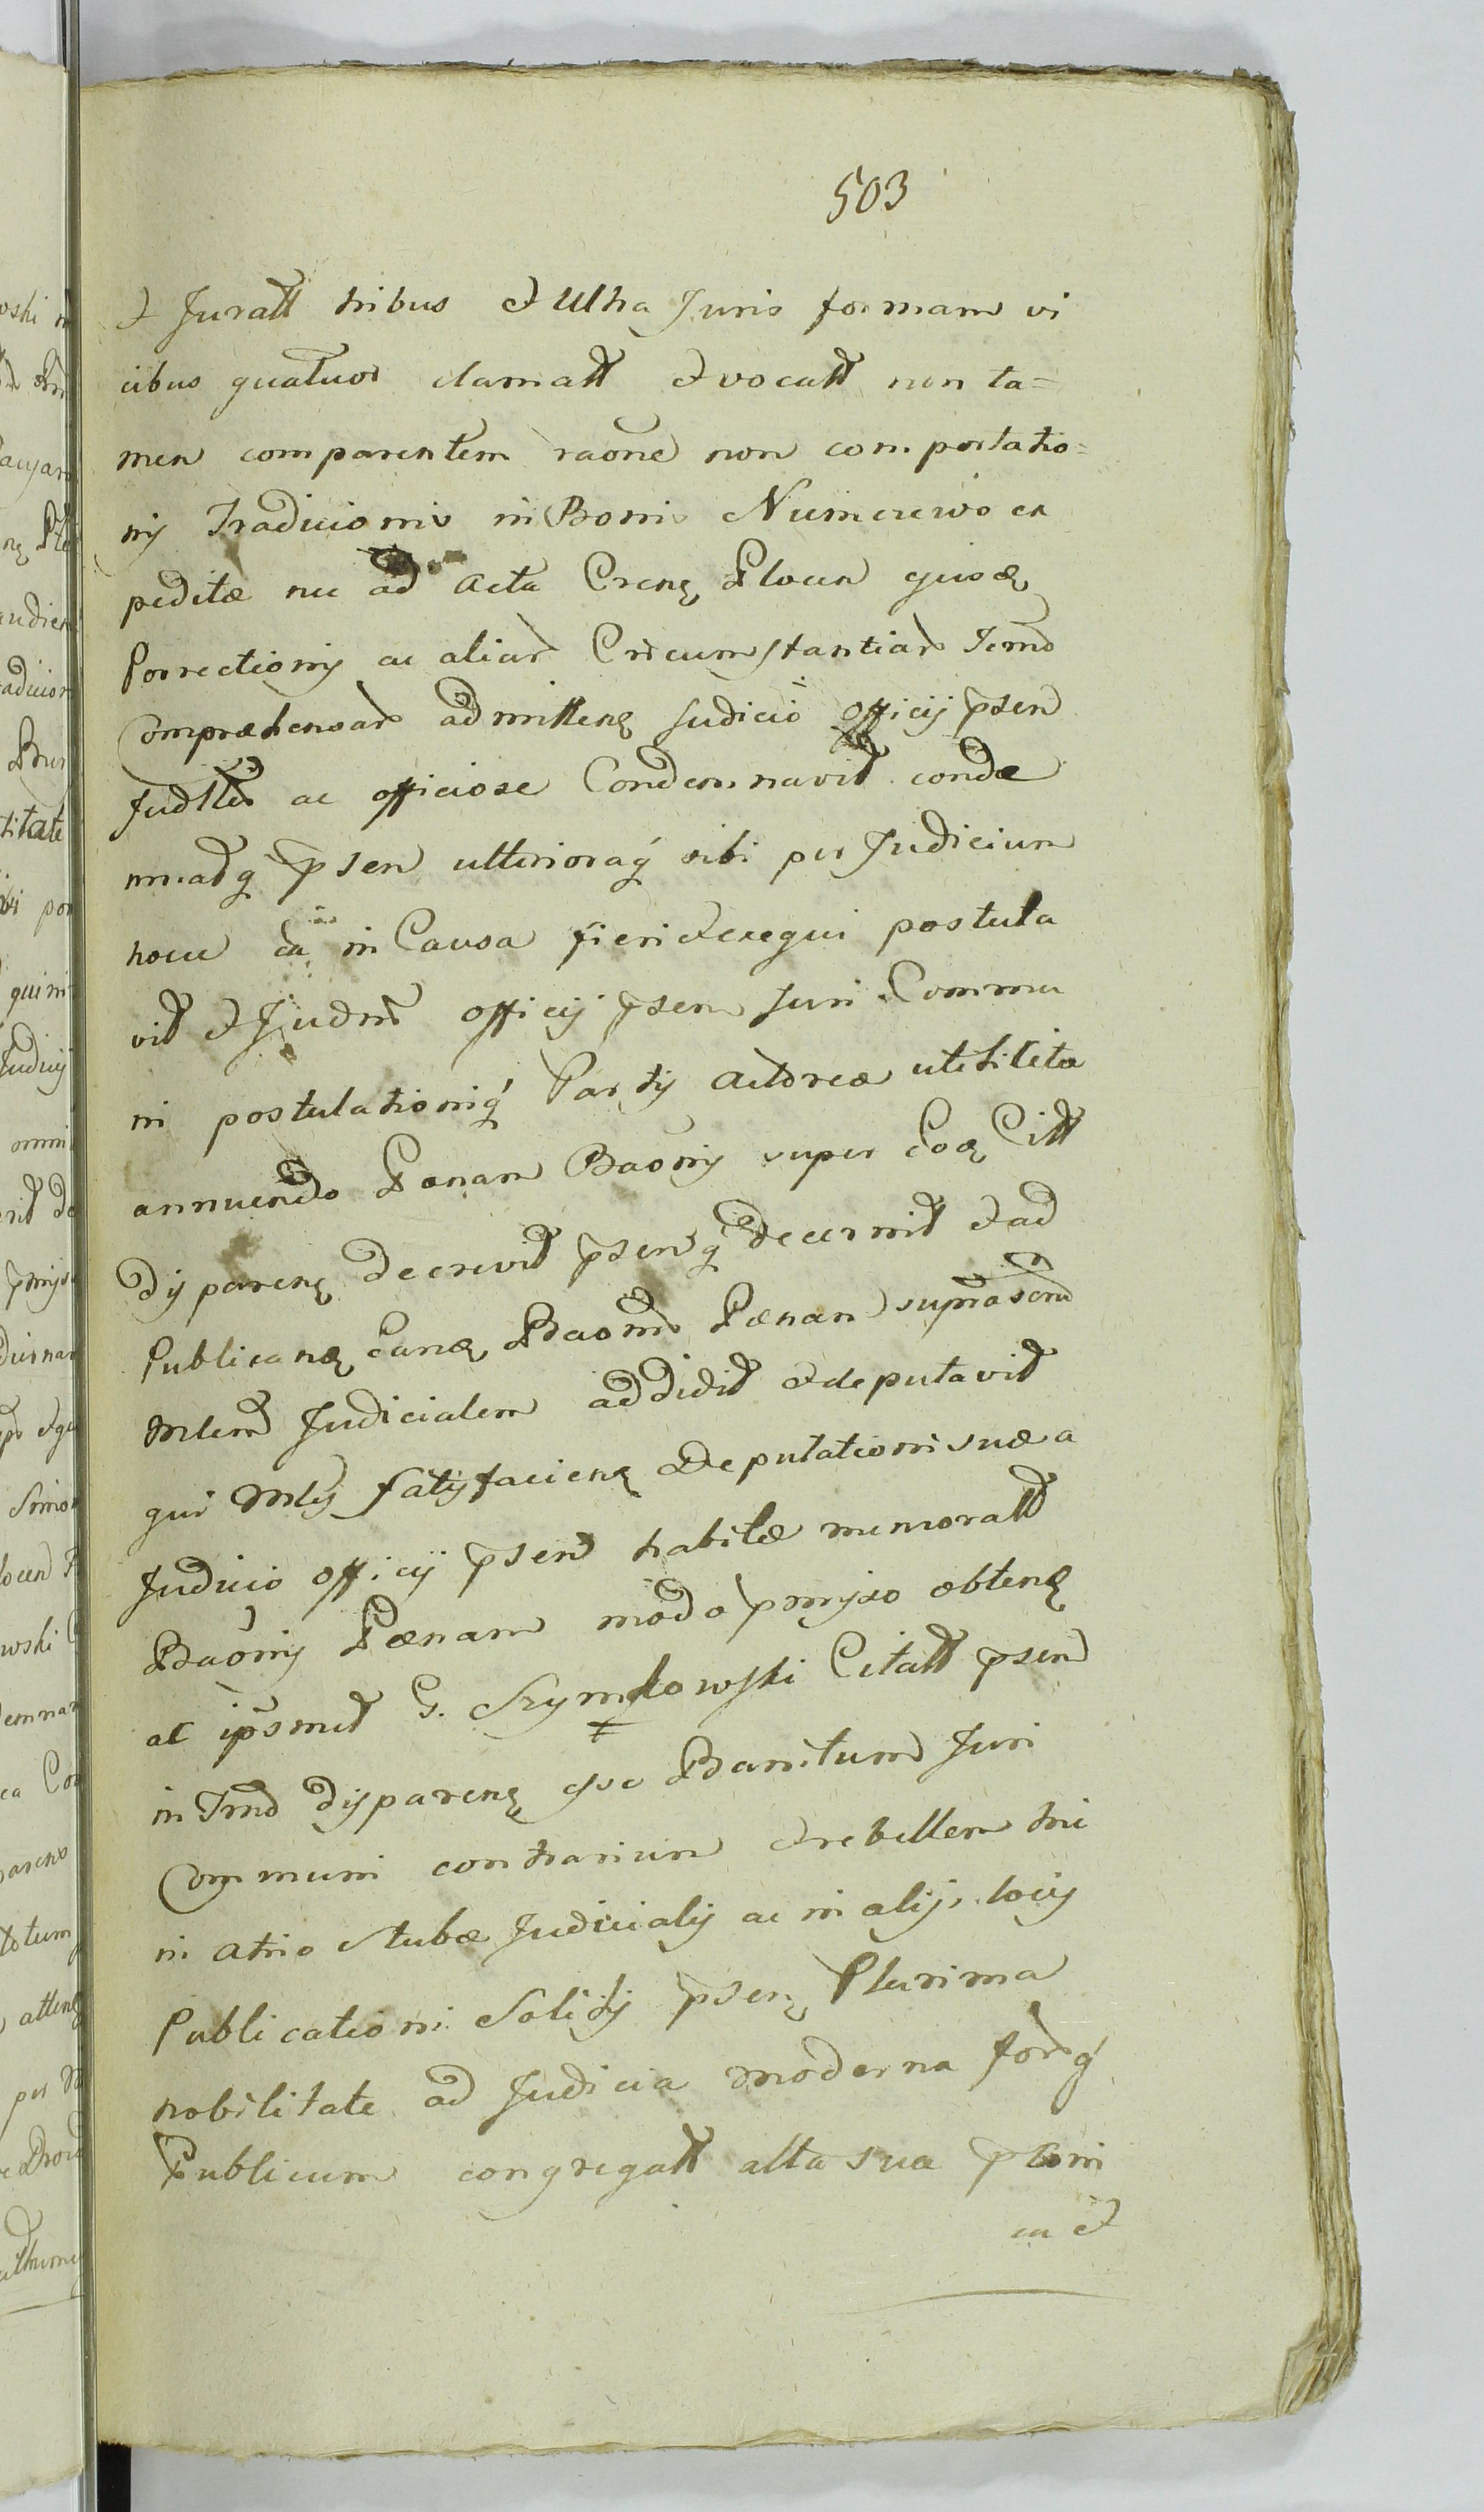 503
et Juratt tribus et Ultra Juris formam vi
cibus quatuor clamatt et vocatt non ta=
men comparentem raone non comportatio=
nis Tradicionis in Bonis Numerewo ex
peditæ nec ad Acta Crens Plocen ejusd
Porrectionis ac aliar Circumstantiar Termo
Compræhensar admittens Judicio officij psen
Judtter ac officiose Condemnavit conde
mnatq psen ulterioraq sibi per Judicium
hocce ea in Causa fieri et exequi postula
vit et Judm officij psen Juri Commu
ni postulationiq Partis Actoreæ utilitita
annuendo Pænam Baonis super Eod Citt
disparens decrevit psenq decernit et ad
Publicand Eand Baonis Pænam supra scrip
Mlem Judicialem addidit et deputavit
qui Mlis satisfaciens Deputationi suæ a
Judicio officij psen habitæ memoratt
Baonis Pænam modo pmisso obtens
at ipsmet G. Szymkowski Citatt psen
in Tmo disparens qve Banitum Juri
Communi contrarium et rebellem hic
in atrio stubæ Judicialis ac in alijs locis
Publicationi Solitis psens Plurima
nobilitate ad Judicia moderna forq
Publicum congregatt alta sua ptoni
ca et